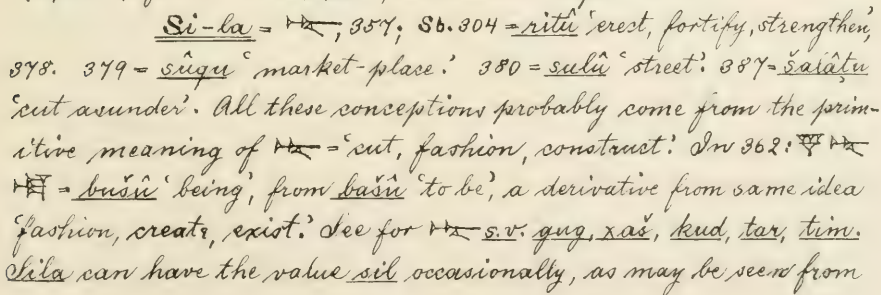 Si-la = 𒋻, 357; Sb. 304 = ritû 'erect, fortify, strengthen,'
378. 379 = sûqu 'market-place.' 380 = sulû 'street'. 387 = šalâtu
'cut asunder'. All these conceptions probably come from the prim-
itive meaning of 𒋻 = 'cut, fashion, construct.' In 362: 𒐼 𒋻
= bušû 'being', from bašû 'to be', a derivative from same idea
'fashion, create, exist.' See for 𒋻 s.v. gug, xaš, kud, tar, tim.
Sila can have the value sil occasionally, as may be seen from